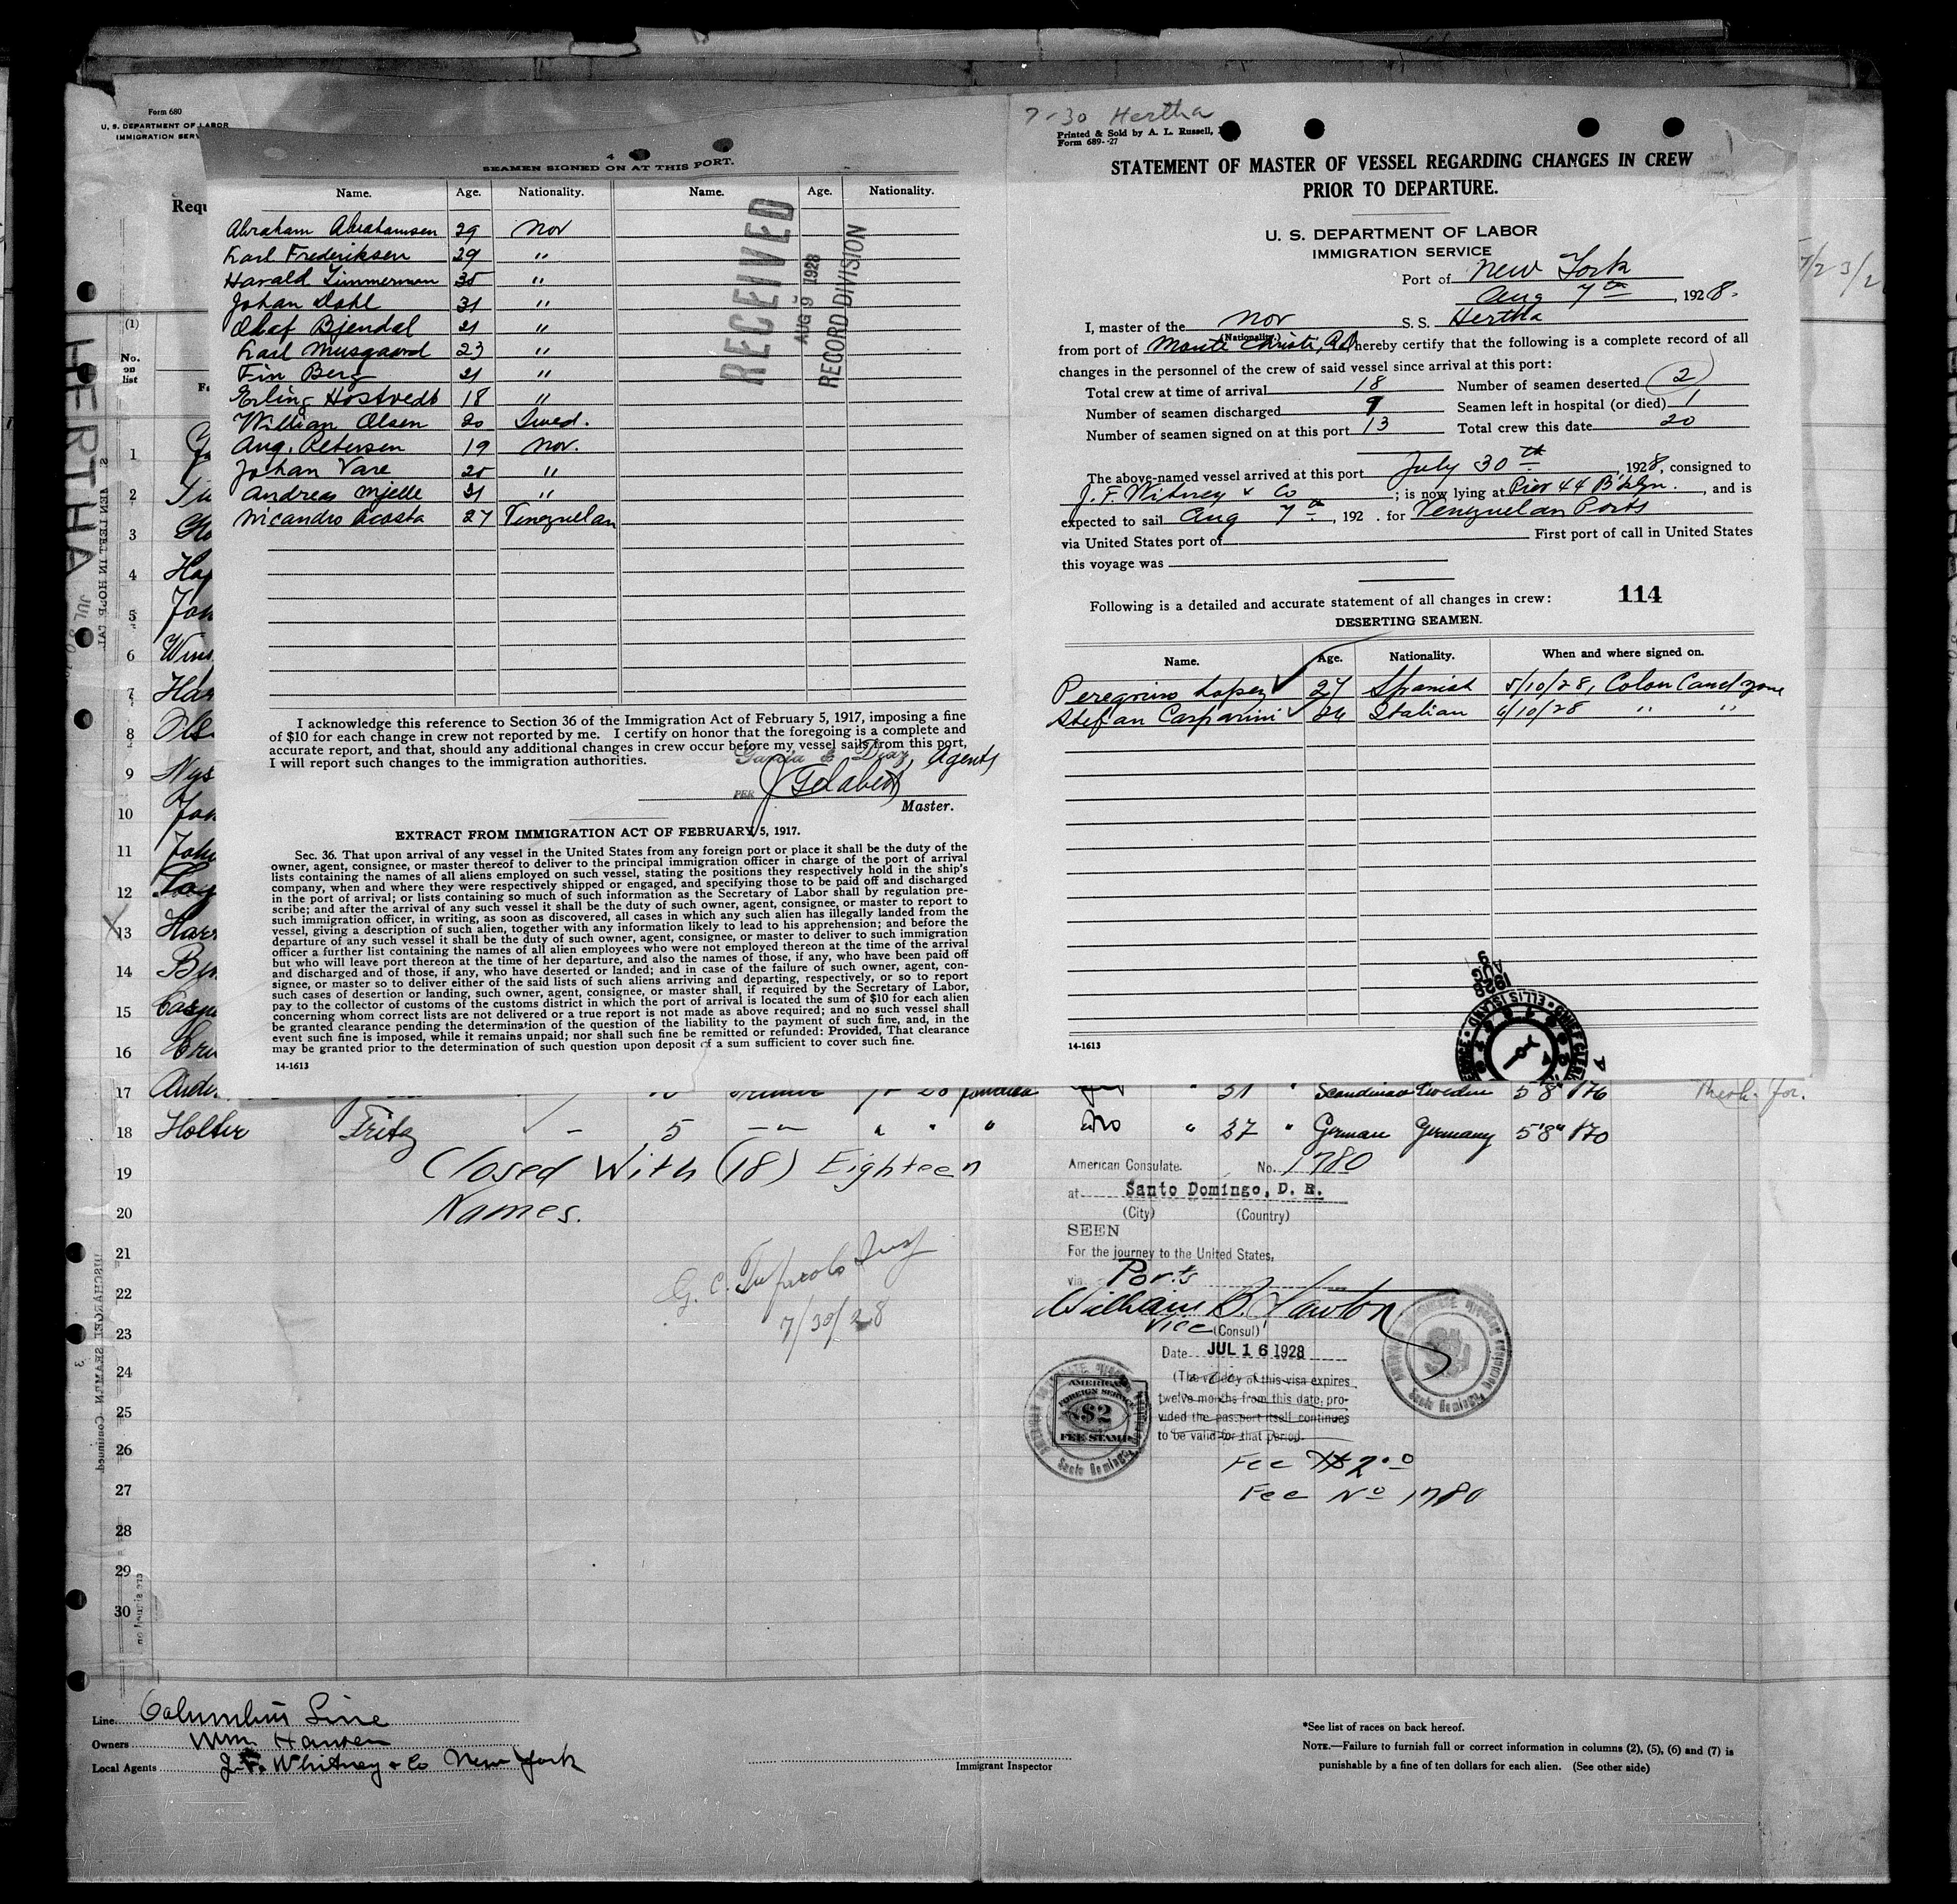 Form 680
U. S. DEPARTMENT OF LABOR
IMMIGRATION SERV
Requ
(1)
No. on list
HERTHA
4
SEAMEN SIGNED ON AT THIS PORT.
Name. Age. Nationality. Name. Age. Nationality.
Abraham Abrahamsen 29 Nor
Karl Frederiksen 29 "
Harald Zimmerman 35 "
Johan Dahl 31 "
Olaf Bjendal 21 "
Karl Musgaard 23 "
Fin Berg 21 "
Erling Hostvedt 18 "
William Olsen 20 Swed.
Aug. Petersen 19 Nor.
Johan Vare 25 "
Andreas Mjelle 21 "
Nicandro Acosta 27 Venezuelan
RECEIVED
AUG 9 1928
RECORD DIVISION
I acknowledge this reference to Section 36 of the Immigration Act of February 5, 1917, imposing a fine
of $10 for each change in crew not reported by me. I certify on honor that the foregoing is a complete and
accurate report, and that, should any additional changes in crew occur before my vessel sails from this port,
I will report such changes to the immigration authorities.
Garcia & Diaz, Agents
PER
Master.
EXTRACT FROM IMMIGRATION ACT OF FEBRUARY 5, 1917.
Sec. 36. That upon arrival of any vessel in the United States from any foreign port or place it shall be the duty of the
owner, agent, consignee, or master thereof to deliver to the principal immigration officer in charge of the port of arrival
lists containing the names of all aliens employed on such vessel, stating the positions they respectively hold in the ship's
company, when and where they were respectively shipped or engaged, and specifying those to be paid off and discharged
in the port of arrival; or lists containing so much of such information as the Secretary of Labor shall by regulation pre-
scribe; and after the arrival of any such vessel it shall be the duty of such owner, agent, consignee, or master to report to
such immigration officer, in writing, as soon as discovered, all cases in which any such alien has illegally landed from the
vessel, giving a description of such alien, together with any information likely to lead to his apprehension; and before the
departure of any such vessel it shall be the duty of such owner, agent, consignee, or master to deliver to such immigration
officer a further list containing the names of all alien employees who were not employed thereon at the time of the arrival
but who will leave port thereon at the time of her departure, and also the names of those, if any, who have been paid off
and discharged and of those, if any, who have deserted or landed; and in case of the failure of such owner, agent, con-
signee, or master so to deliver either of the said lists of such aliens arriving and departing, respectively, or so to report
such cases of desertion or landing, such owner, agent, consignee, or master shall, if required by the Secretary of Labor,
pay to the collector of customs of the customs district in which the port of arrival is located the sum of $10 for each alien
concerning whom correct lists are not delivered or a true report is not made as above required; and no such vessel shall
be granted clearance pending the determination of the question of the liability to the payment of such fine, and, in the
event such fine is imposed, while it remains unpaid; nor shall such fine be remitted or refunded: Provided, That clearance
may be granted prior to the determination of such question upon deposit of a sum sufficient to cover such fine.
14-1613
7-30 Hertha
Printed & Sold by A. L. Russell,
Form 689--27
STATEMENT OF MASTER OF VESSEL REGARDING CHANGES IN CREW
PRIOR TO DEPARTURE.
U. S. DEPARTMENT OF LABOR
IMMIGRATION SERVICE
Port of New York
Aug 7th, 1928.
I, master of the Nor S. S. Hertha
(Nationality.)
from port of Monte Christi, R.D. hereby certify that the following is a complete record of all
changes in the personnel of the crew of said vessel since arrival at this port:
Total crew at time of arrival 18 Number of seamen deserted 2
Number of seamen discharged 9 Seamen left in hospital (or died) 1
Number of seamen signed on at this port 13 Total crew this date 20
The above-named vessel arrived at this port July 30th, 1928, consigned to
J. F. Witney & Co; is now lying at Pier 44 B'klyn., and is
expected to sail Aug 7th, 192 . for Venezuelan Ports
via United States port of First port of call in United States
this voyage was
Following is a detailed and accurate statement of all changes in crew: 114
DESERTING SEAMEN.
Name. Age. Nationality. When and where signed on.
Peregrino Lopez 27 Spanish 5/10/28, Colon Canal zone
Stefan Casparini 26 Italian 6/10/28 " "
14-1613
AUG 9 1928
ELLIS ISLAND
1
2
3
4
5
6
7
8
9
10
11
12
13
14
15
16
17
18 Holter Fritz - 5 " " " " 37 " German Germany 5'8" 170
19 Closed With (18) Eighteen
20 Names.
21
22
7/30/28
23
24
25
26
27
28
29
30
American Consulate. No. 1780
at Santo Domingo, D. R.
(City) (Country)
SEEN
For the journey to the United States,
via Ports
William B. Lawton
Vice (Consul)
Date JUL 16 1928
(The validity of this visa expires
twelve months from this date, pro-
vided the passport itself continues
to be valid for that period.
AMERICAN
FOREIGN SERVICE
$2
FEE STAMP
Santo Domingo
Fee $2.00
Fee No 1780
Line Columbus Line
Owners Wm Hansen
Local Agents J. F. Whitney & Co New York
Immigrant Inspector
*See list of races on back hereof.
NOTE.—Failure to furnish full or correct information in columns (2), (5), (6) and (7) is
punishable by a fine of ten dollars for each alien. (See other side)